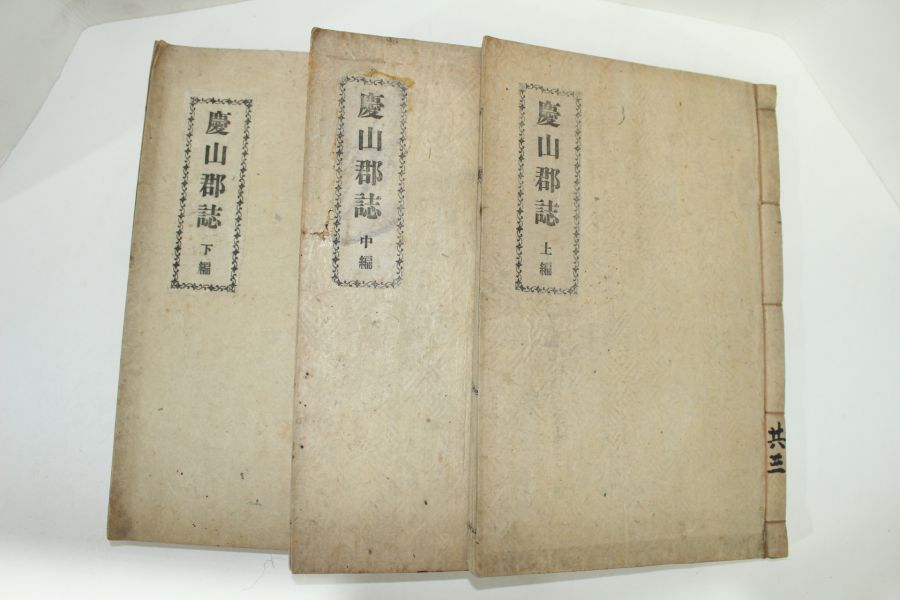 慶山郡誌 上編
慶山郡誌 中編
慶山郡誌 下編
共三